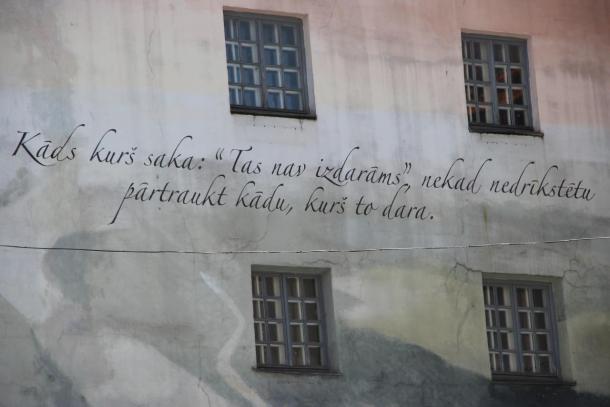 Kāds kurš saka: “Tas nav izdarāms” nekad nedrīkstētu
pārtraukt kādu, kurš to dara.